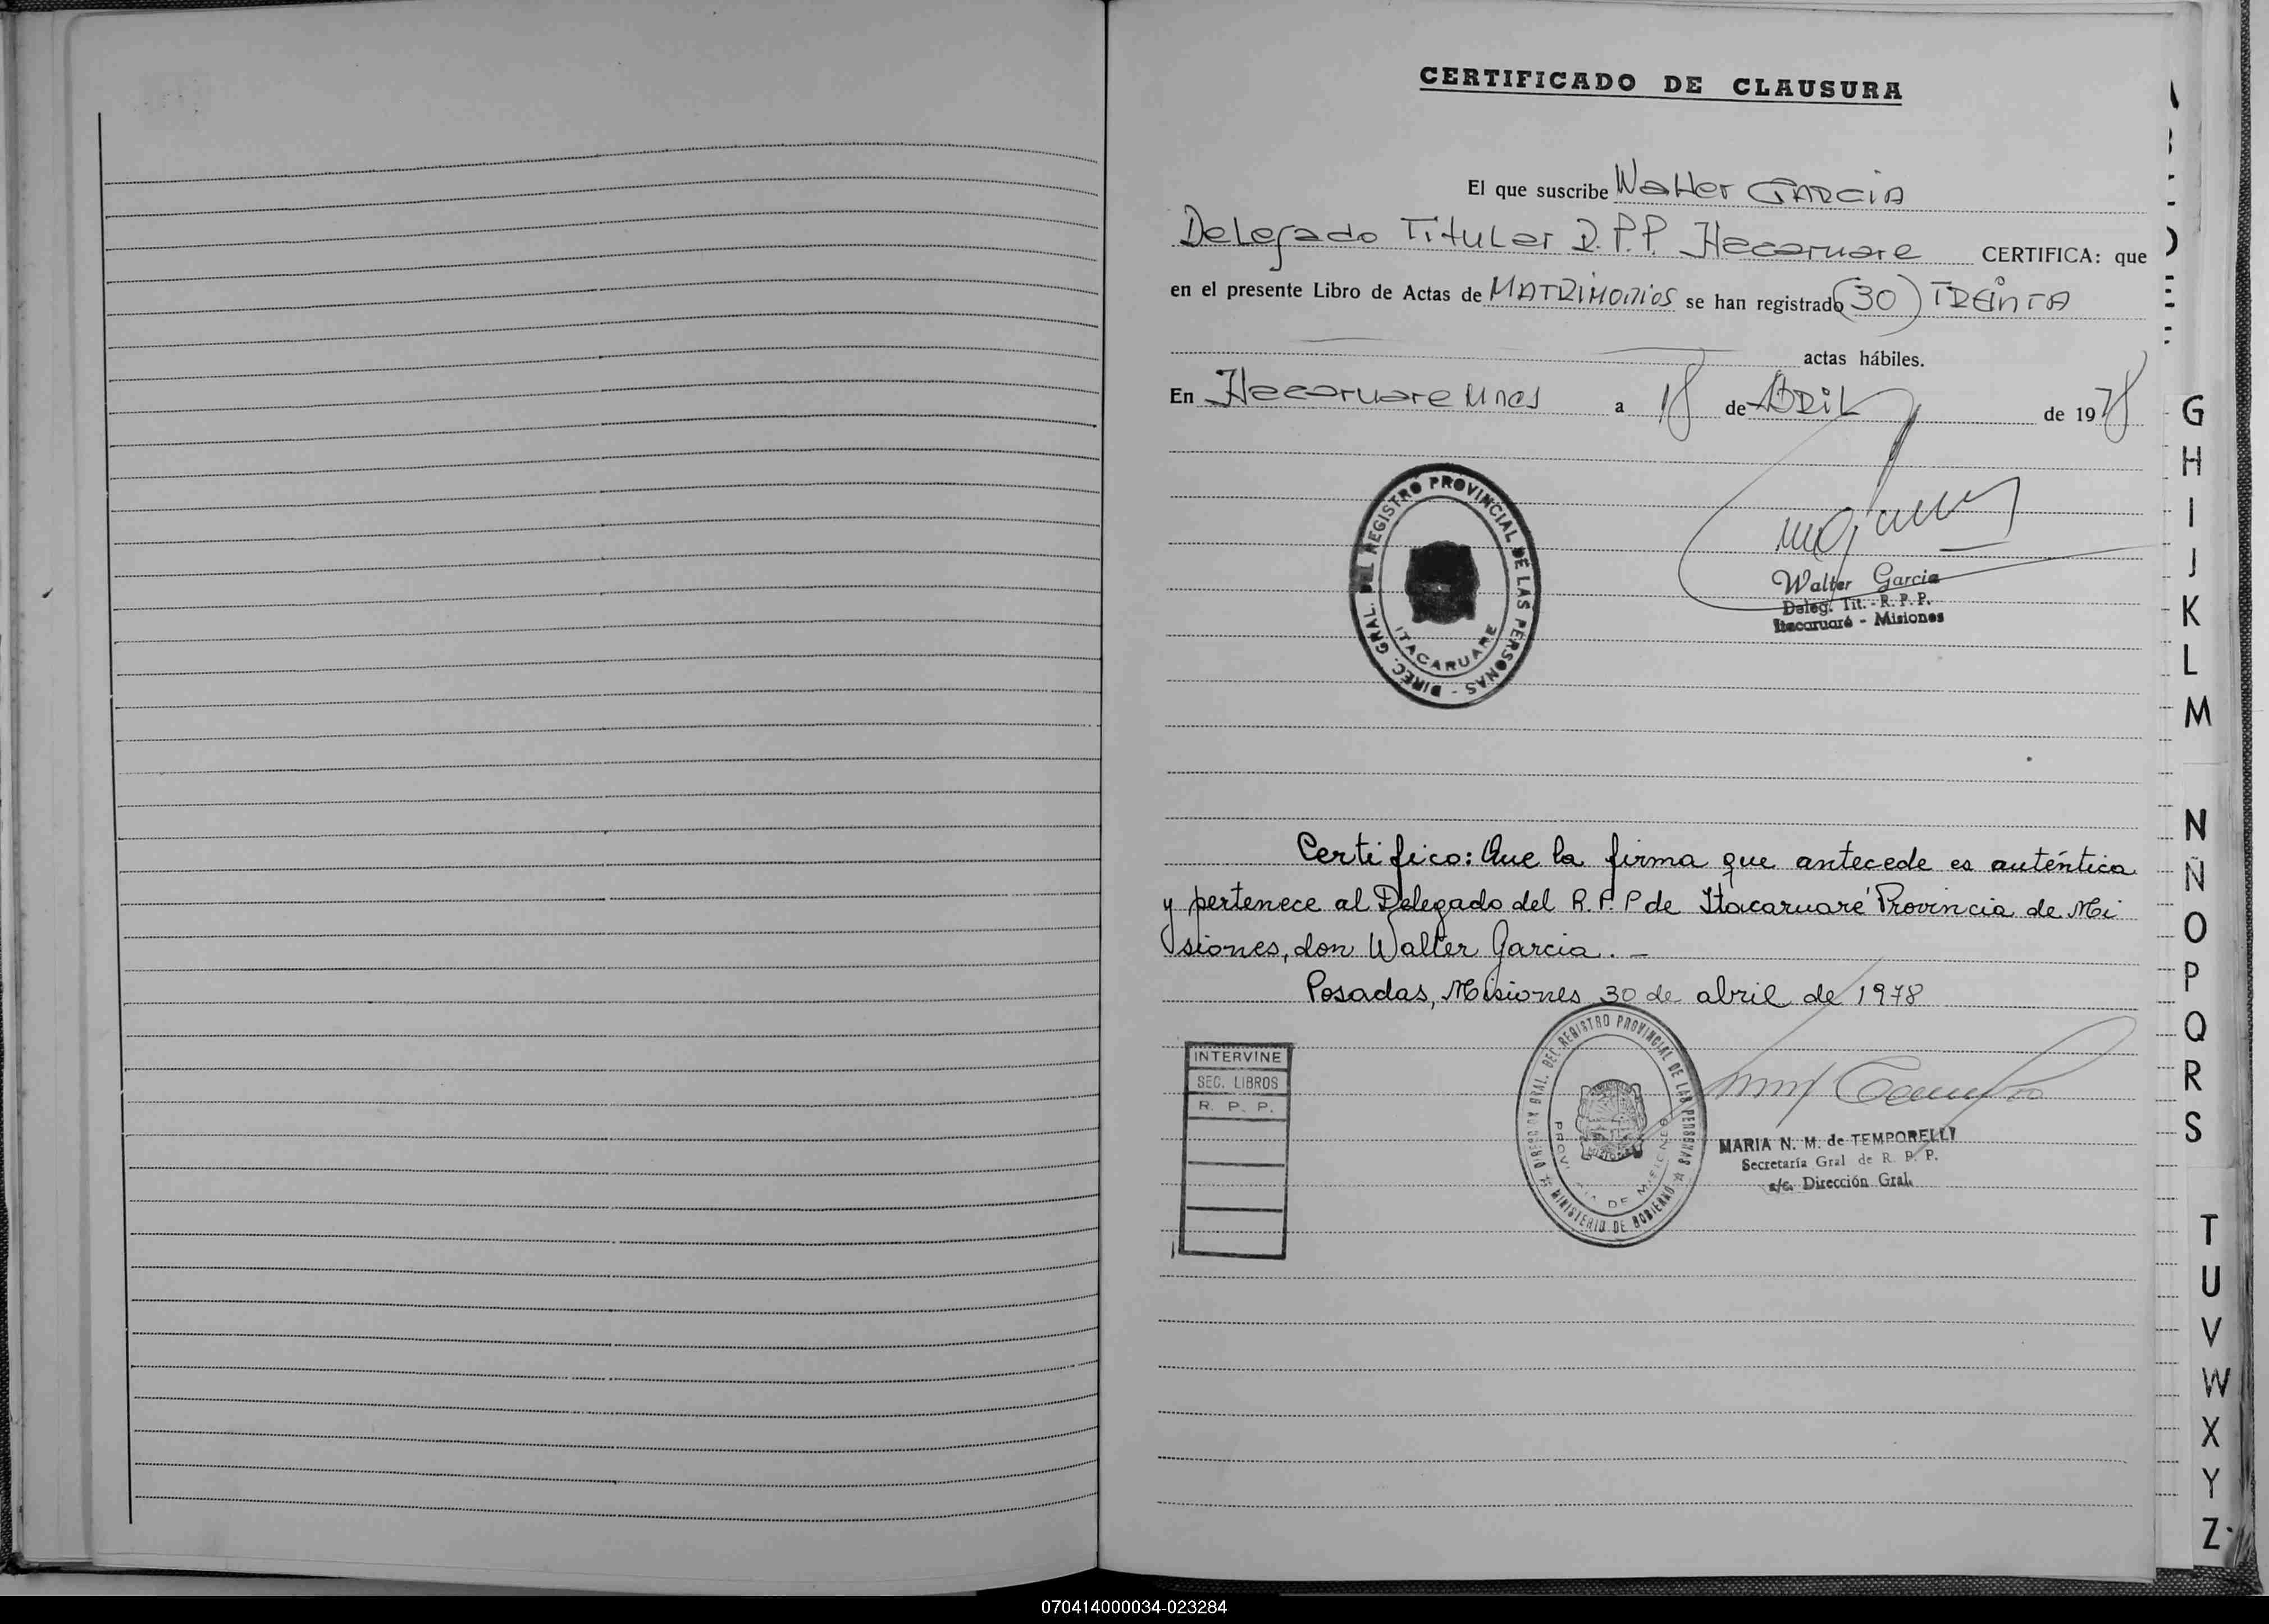 CERTIFICADO DE CLAUSURA
El que suscribe Walter GARCIA
Delegado Titular R.P.P. Itacaruare CERTIFICA: que
en el presente Libro de Actas de MATRIMONIOS se han registrado (30) TREINTA
actas hábiles.
En Itacaruare Mnes a 18 de ABRIL de 1978
DIREC. GRAL. DEL REGISTRO PROVINCIAL DE LAS PERSONAS -
ITACARUARE
Walter Garcia
Deleg. Tit. - R. P. P.
Itacaruaré - Misiones
Certifico: Que la firma que antecede es auténtica
y pertenece al Delegado del R.P.P de Itacaruaré Provincia de Mi
siones, don Walter Garcia. -
Posadas, Misiones 30 de abril de 1978
INTERVINE
SEC. LIBROS
R. P. P.
DIRECCION GRAL. DEL REGISTRO PROVINCIAL DE LAS PERSONAS
MINISTERIO DE GOBIERNO
PROVINCIA DE MISIONES
MARIA N. M. de TEMPORELLI
Secretaría Gral de R. P. P.
a/c. Dirección Gral.
G
H
I
J
K
L
M
N
Ñ
O
P
Q
R
S
T
U
V
W
X
Y
Z
070414000034-023284